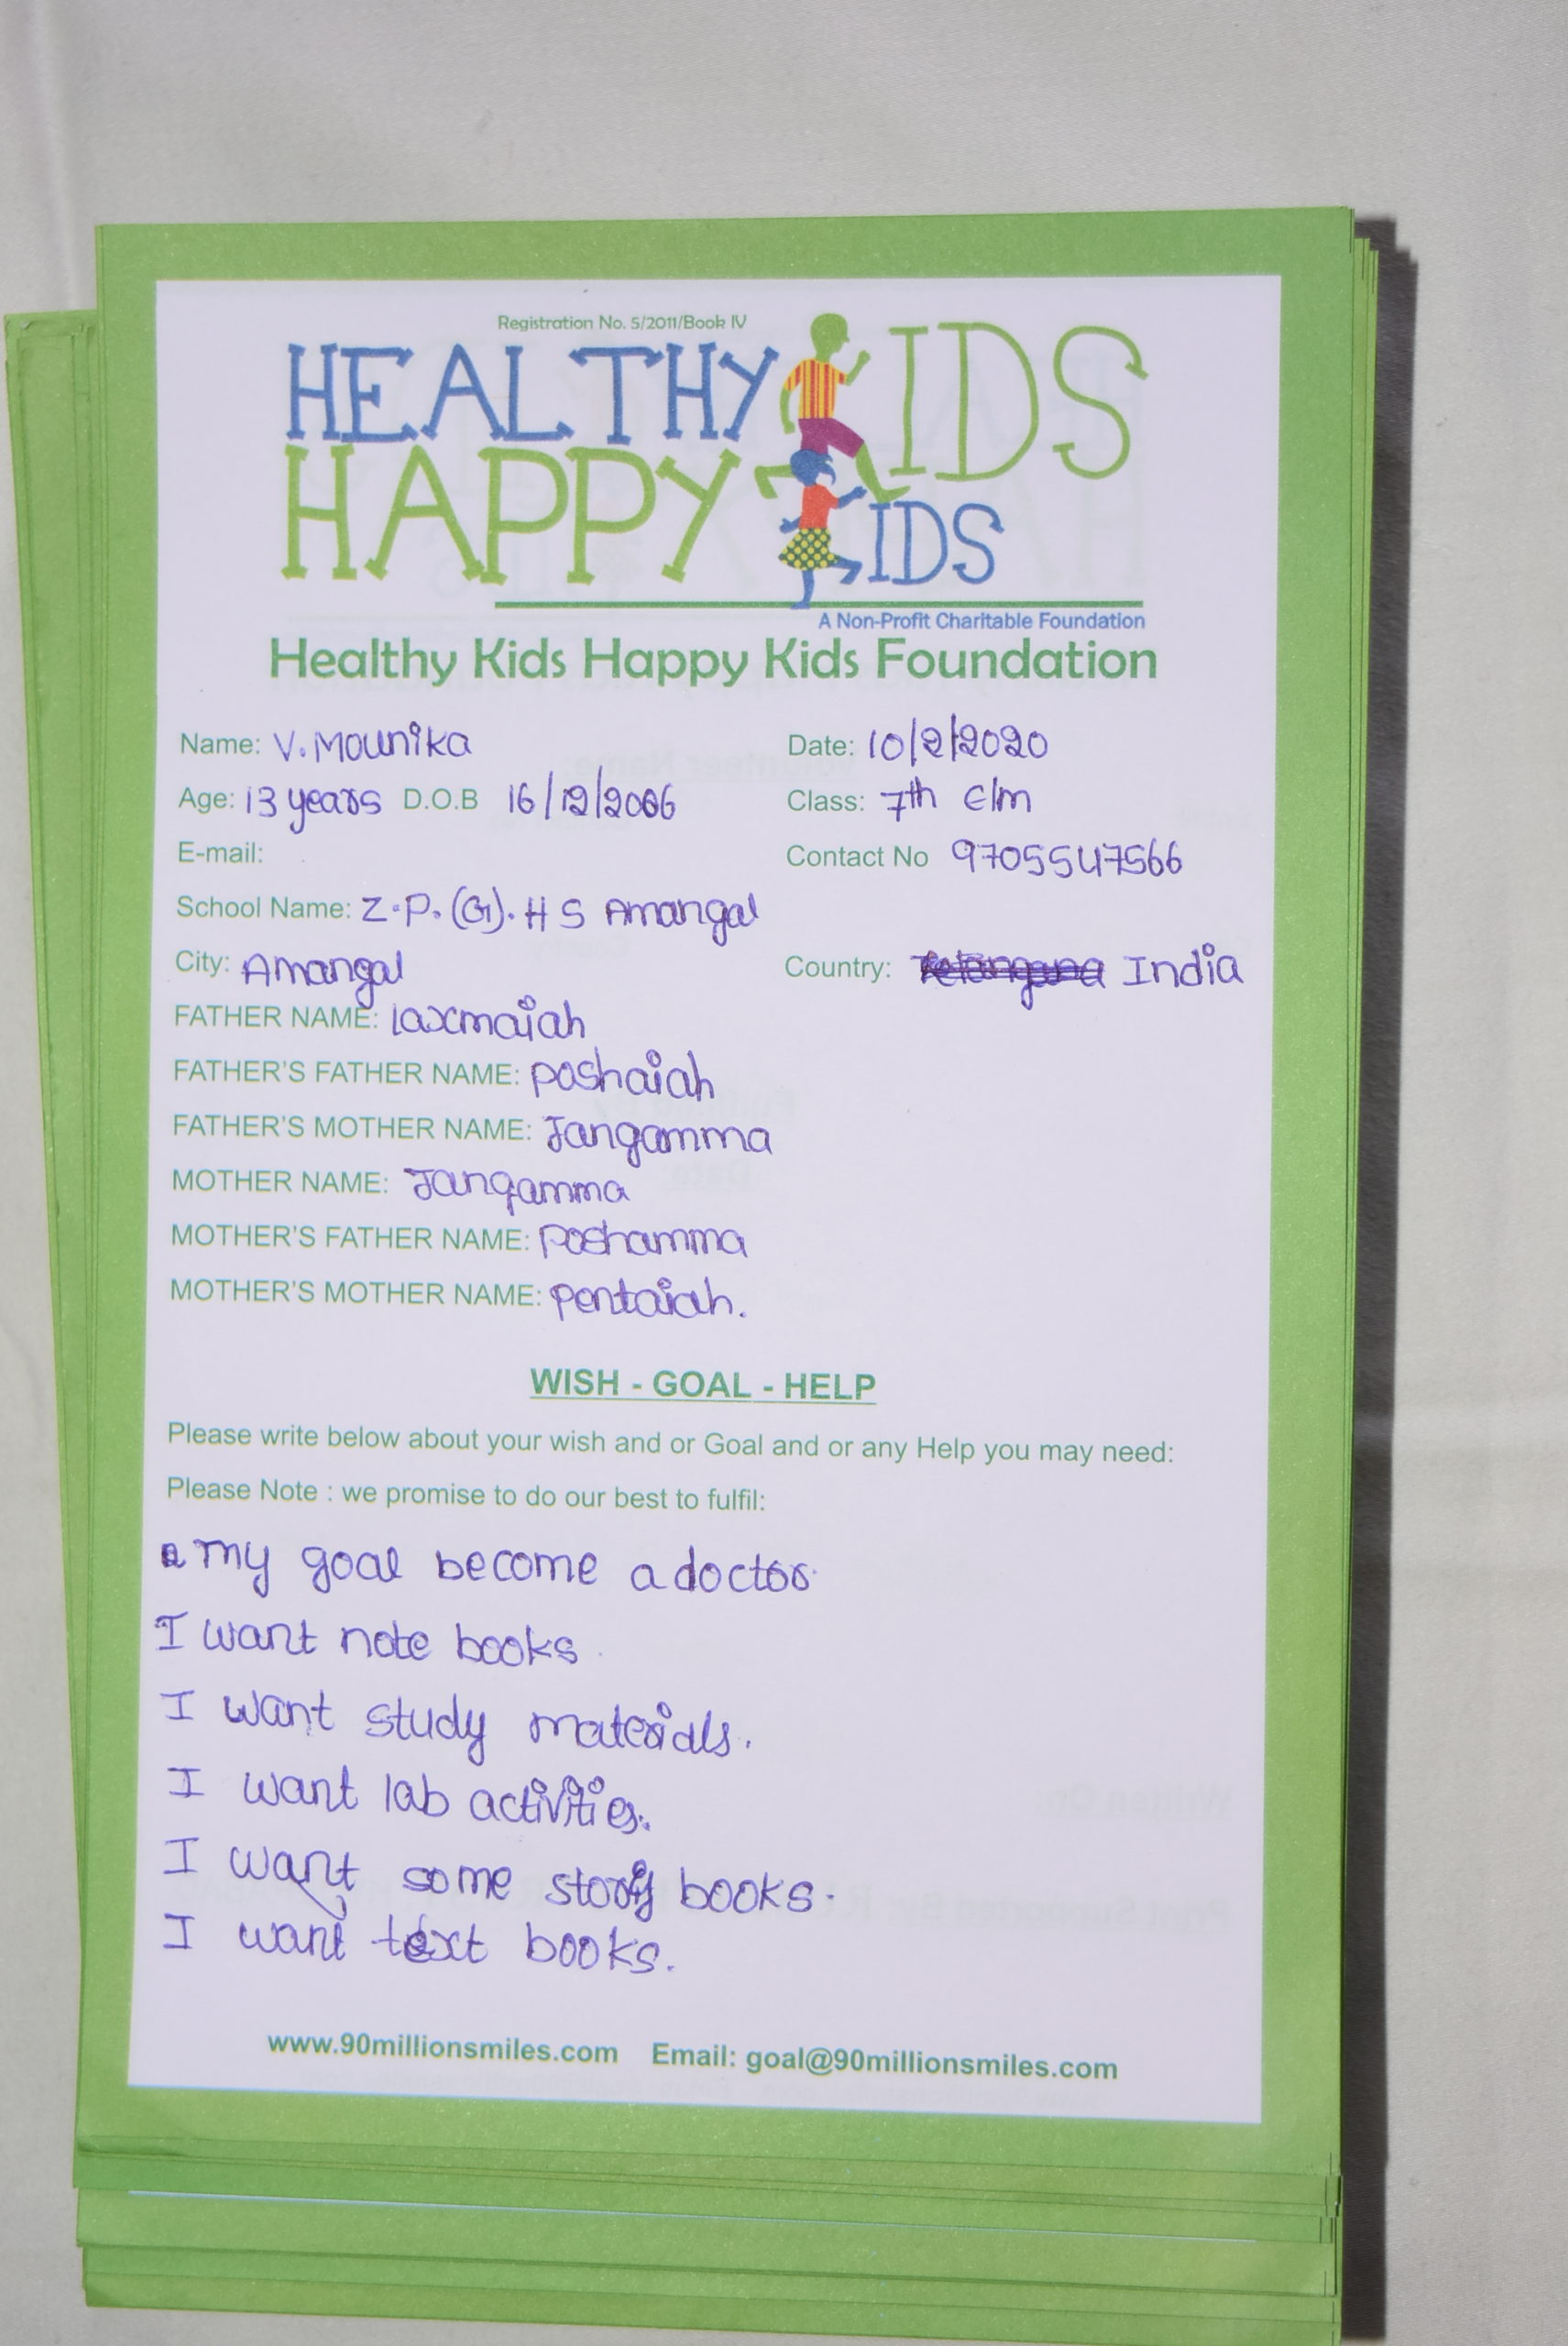 Registration No. 5/2011/Book IV
HEALTHY KIDS
HAPPY KIDS
A Non-Profit Charitable Foundation
Healthy Kids Happy Kids Foundation
Name: V. Mounika Date: 10/2/2020
Age: 13 years D.O.B 16/12/2006 Class: 7th E/m
E-mail: Contact No 9705547566
School Name: Z.P.(G).H S Amangal
City: Amangal Country: Telangana India
FATHER NAME: laxmaiah
FATHER'S FATHER NAME: poshaiah
FATHER'S MOTHER NAME: Jangamma
MOTHER NAME: Jangamma
MOTHER'S FATHER NAME: poshamma
MOTHER'S MOTHER NAME: pentaiah.
WISH - GOAL - HELP
Please write below about your wish and or Goal and or any Help you may need:
Please Note : we promise to do our best to fulfil:
my goal become a doctor.
I want note books.
I want study materials.
I want lab activities.
I want some story books.
I want text books.
www.90millionsmiles.com Email: goal@90millionsmiles.com